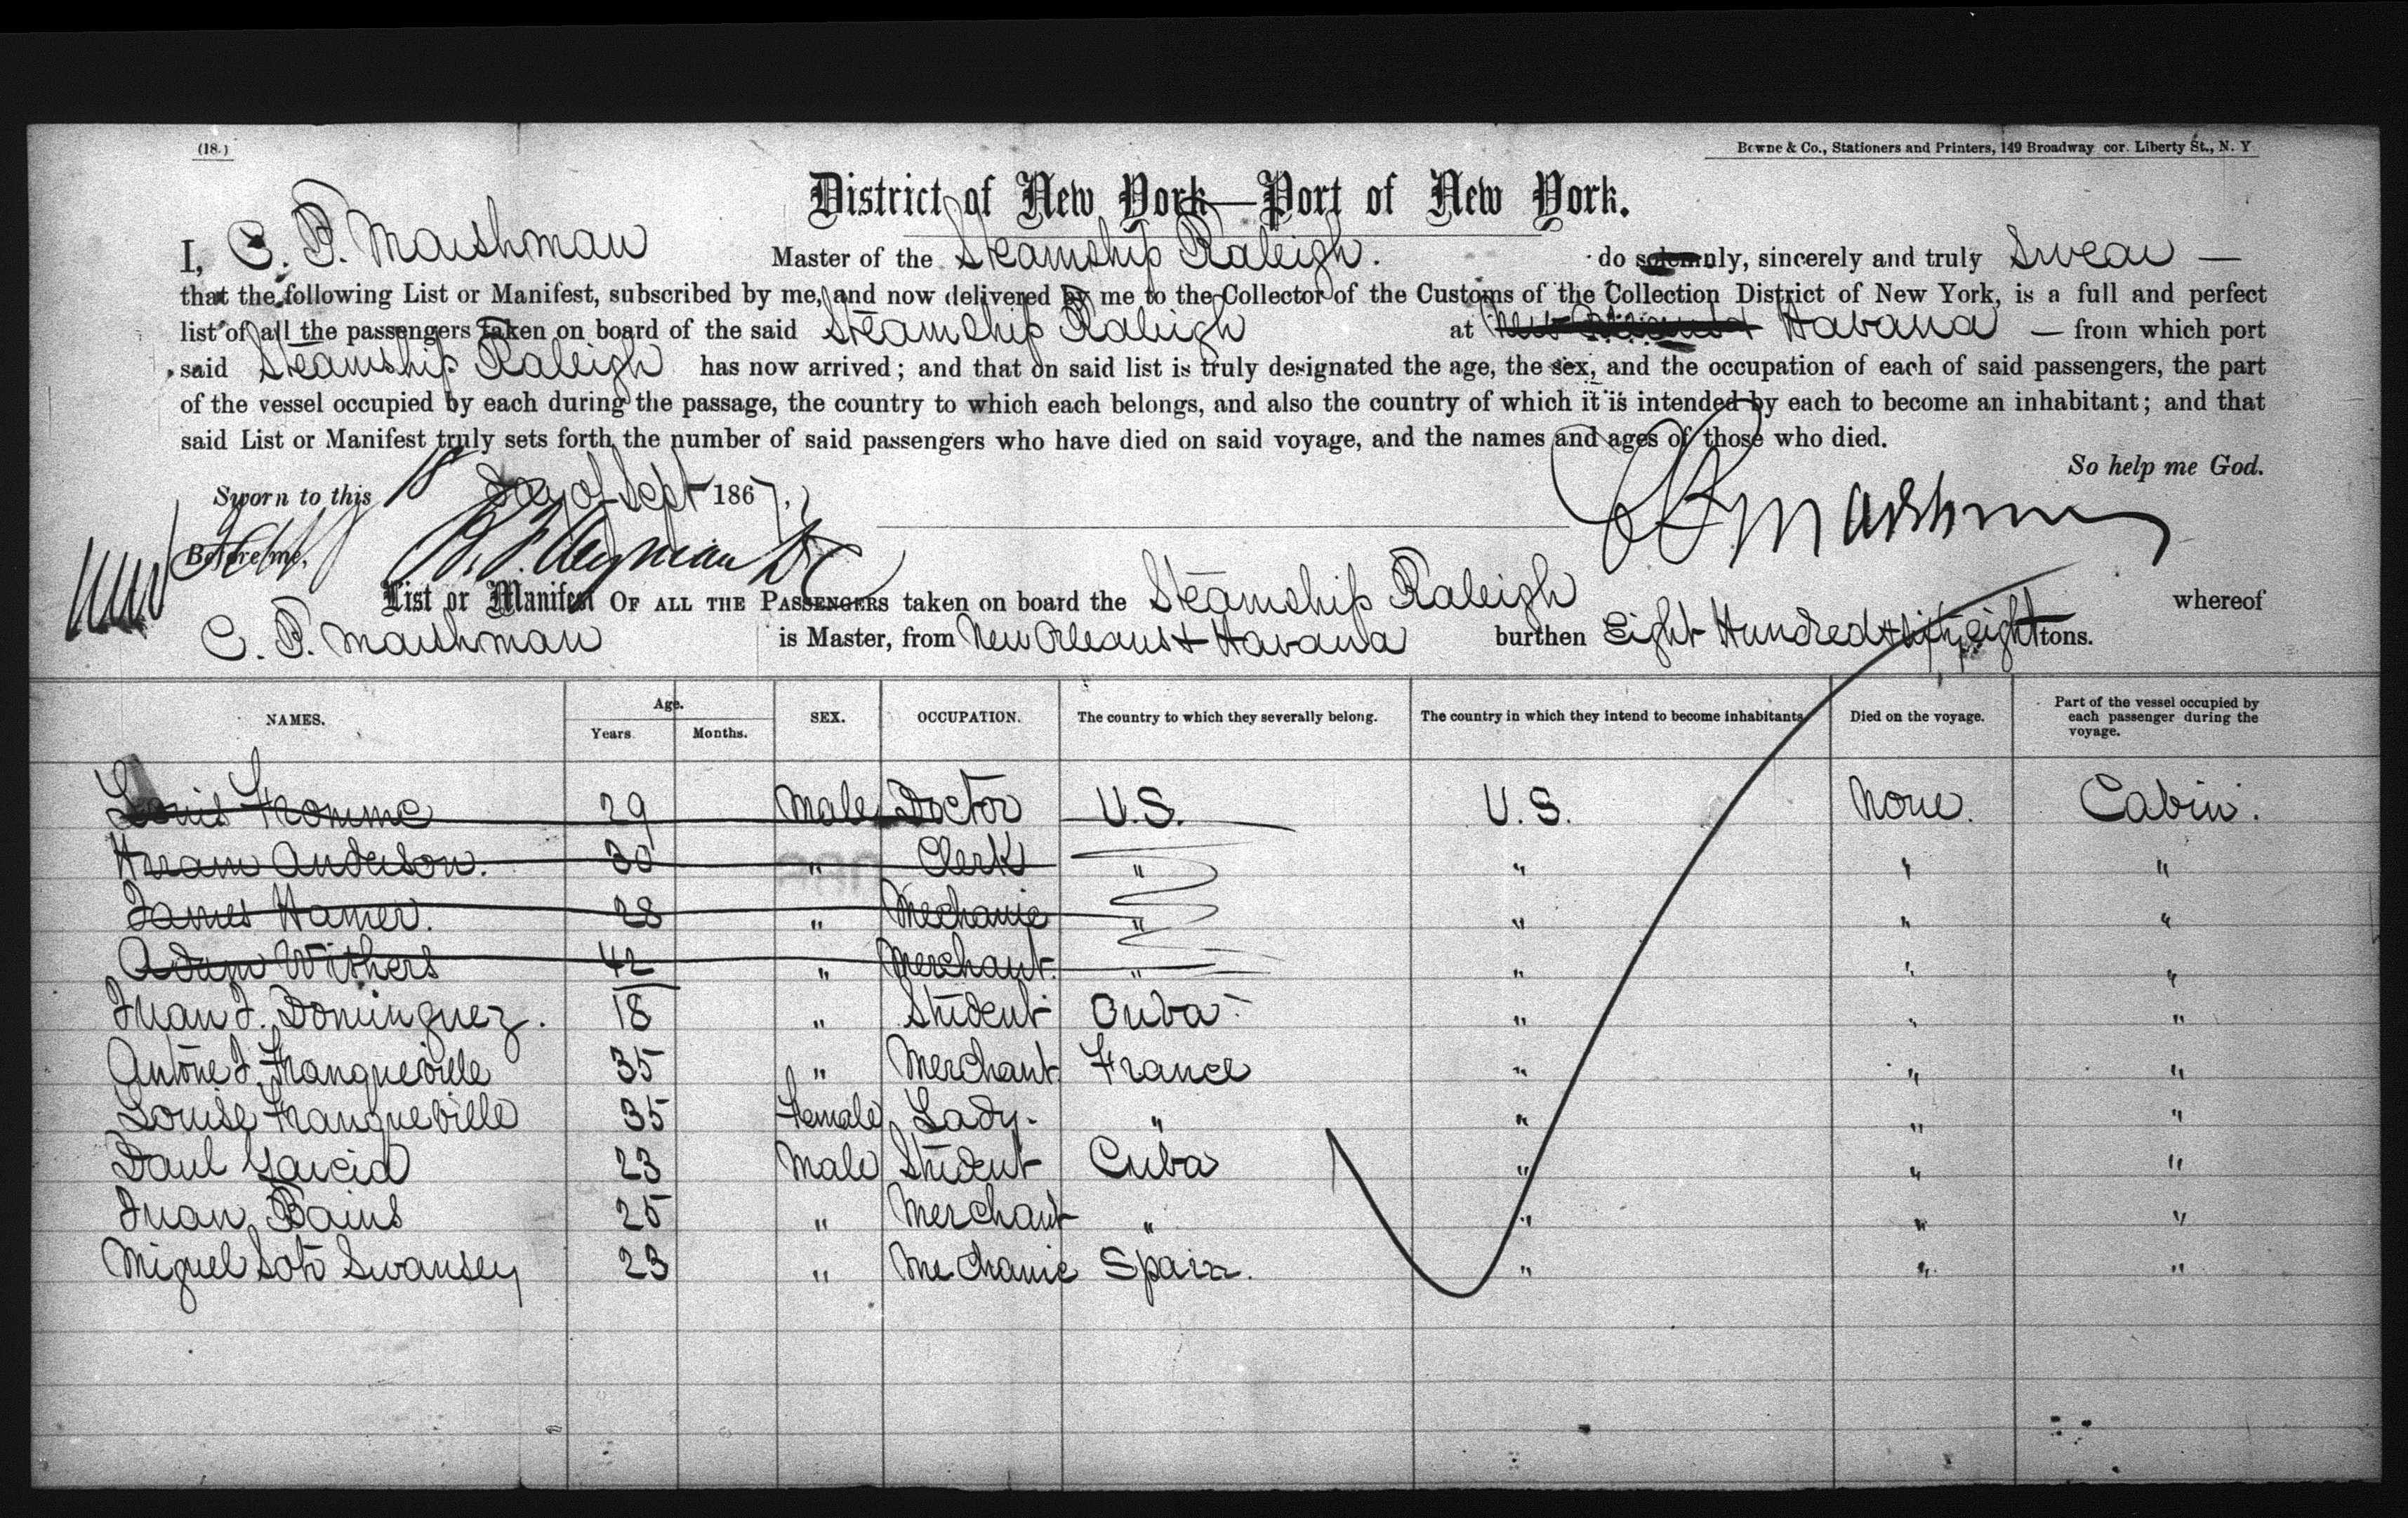 (18.)
Bowne & Co., Stationers and Printers, 149 Broadway cor. Liberty St., N. Y
District of New York—Port of New York.
I, C. P. Marshman Master of the Steamship Raleigh. do solemnly, sincerely and truly Swear —
that the following List or Manifest, subscribed by me, and now delivered by me to the Collector of the Customs of the Collection District of New York, is a full and perfect
list of all the passengers taken on board of the said Steamship Raleigh at Havana — from which port
said Steamship Raleigh has now arrived; and that on said list is truly designated the age, the sex, and the occupation of each of said passengers, the part
of the vessel occupied by each during the passage, the country to which each belongs, and also the country of which it is intended by each to become an inhabitant; and that
said List or Manifest truly sets forth the number of said passengers who have died on said voyage, and the names and ages of those who died.
So help me God.
Sworn to this 18 day of Sept 1867.
C P Marshman
Before me,
List or Manifest OF ALL THE PASSENGERS taken on board the Steamship Raleigh whereof
C. P. Marshman is Master, from New Orleans & Havana burthen Eight Hundred & sixty eight tons.
NAMES. Age. Years Months. SEX. OCCUPATION. The country to which they severally belong. The country in which they intend to become inhabitants. Died on the voyage. Part of the vessel occupied by each passenger during the voyage.
Louis Fromme 29 Male Doctor U.S. U.S. None. Cabin.
Hiram Anderson. 30 " Clerk " " " "
James Hamer. 28 " Mechanic " " " "
Adam Withers 42 " Merchant. " " " "
Juan J. Dominguez. 18 " Student Cuba " " "
Antone J. Franqueville 35 " Merchant France " " "
Louise Franqueville 35 Female Lady. " " " "
Paul Garcia 23 Male Student Cuba " " "
Juan Bains 25 " Merchant " " " "
Miguel Soto Swansey 23 " Mechanic Spain. " " "